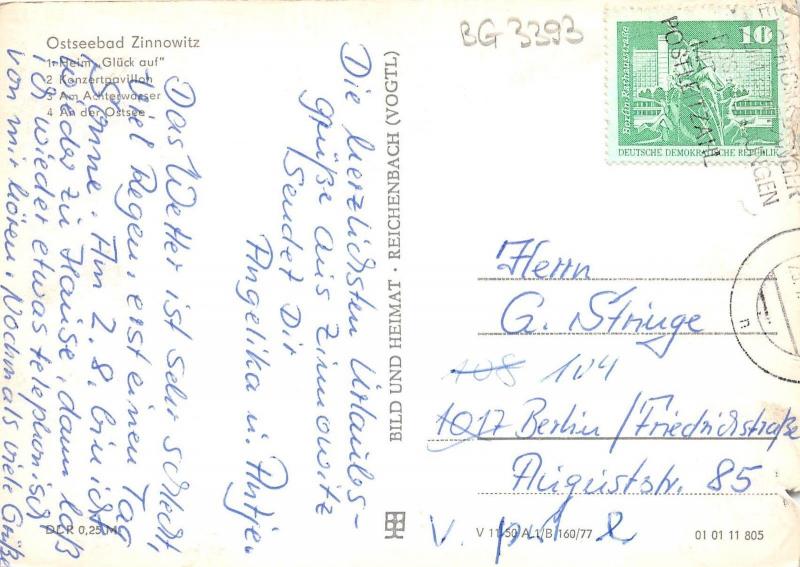 BG 3393
Ostseebad Zinnowitz
1 Heim „Glück auf"
2 Konzertpavillon
3 Am Achterwasser
4 An der Ostsee
Die herzlichsten Urlaubs-
grüße aus Zinnowitz
sendet Dir
Angelika u. Antje.
Das Wetter ist sehr schlecht,
viel Regen, erst einen Tag
Sonne. Am 2.8. bin ich
wieder zu Hause, dann laß
ich wieder etwas telephonisch
von mir hören. Nochmals viele Grüße
DDR 0,25 M
BILD UND HEIMAT · REICHENBACH (VOGTL)
Berlin, Rathausstraße
10
DEUTSCHE DEMOKRATISCHE REPUBLIK
POSTLEITZAHL
Herrn
G. Stringe
108 104
1017 Berlin/Friedrichstraße
Auguststr. 85
V 11-50 A 1/B 160/77
01 01 11 805